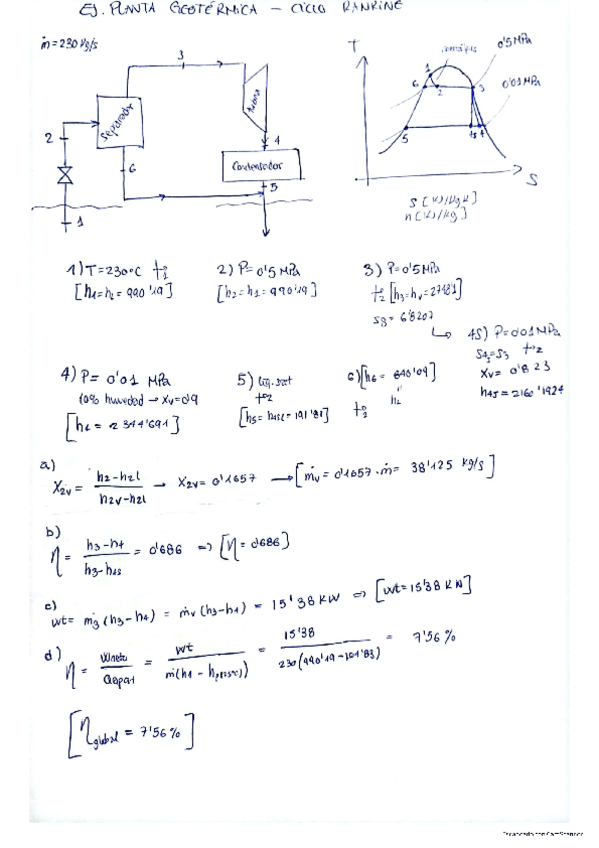 EJ. PLANTA GEOTÉRMICA - CICLO RANKINE
ṁ = 230 kg/s
3
Separador
Turbina
2
4
6
Condensador
5
1
T
0'5 MPa
0'01 MPa
1
6
2
3
5
4s
4
S
S [kJ/kg K]
h [kJ/kg]
1) T = 230ºC
[h1 = hl = 990'19]
2) P = 0'5 MPa
[h2 = h1 = 990'19]
3) P = 0'5 MPa
[h3 = hv = 2748'1]
s3 = 6'8207
4s) P = 0'01 MPa
s4s = s3
Xv = 0'823
h4s = 2160'1924
4) P = 0'01 MPa
10% humedad → Xv = 0'9
[h4 = 2344'691]
5) Líq. sat
[h5 = = 191'81]
6) [h6 = 640'09]
hl
a)
X2v = h2 - h2l / h2v - h2l → X2v = 0'1657 → [ṁv = 0'1657 · ṁ = 38'125 kg/s]
b)
η = h3 - h4 / h3 - h4s = 0'686 => [η = 0'686]
c)
wt = ṁ3 (h3 - h4) = ṁv (h3 - h4) = 15'38 KW => [wt = 15'38 KW]
d)
η = Wneta / Qapat = wt / ṁ(h1 - ) = 15'38 / 230(990'19 - ) = 7'56%
[ηglobal = 7'56%]